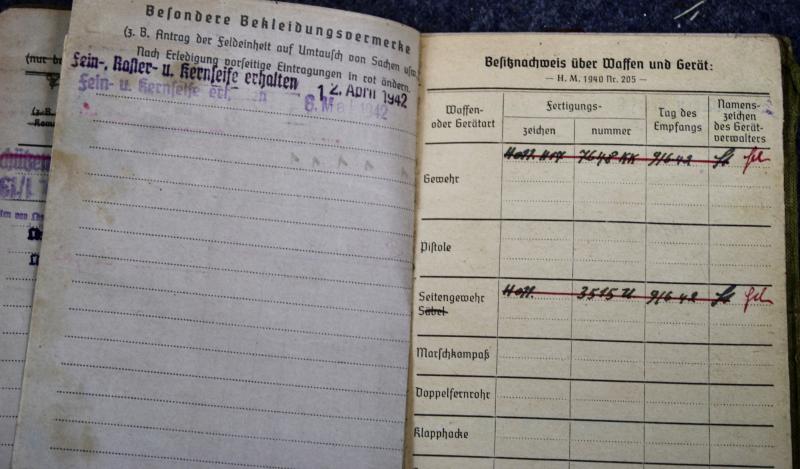 Besondere Bekleidungsvermerke
(z. B. Antrag der Feldeinheit auf Umtausch von Sachen usw.
Nach Erledigung vorseitige Eintragungen in rot ändern.
Fein-, Rasier- u. Kernseife erhalten 12. April 1942
Fein- u. Kernseife 8. Mai 1942
Besitznachweis über Waffen und Gerät:
— H. M. 1940 Nr. 205 —
Waffen- oder Gerätart
Fertigungs-
zeichen
nummer
Tag des Empfangs
Namens-zeichen des Gerät-verwalters
Gewehr 7648 9/6 42
Pistole
Seitengewehr 3515 9/6 42
Säbel
Marschkompaß
Doppelfernrohr
Klapphacke